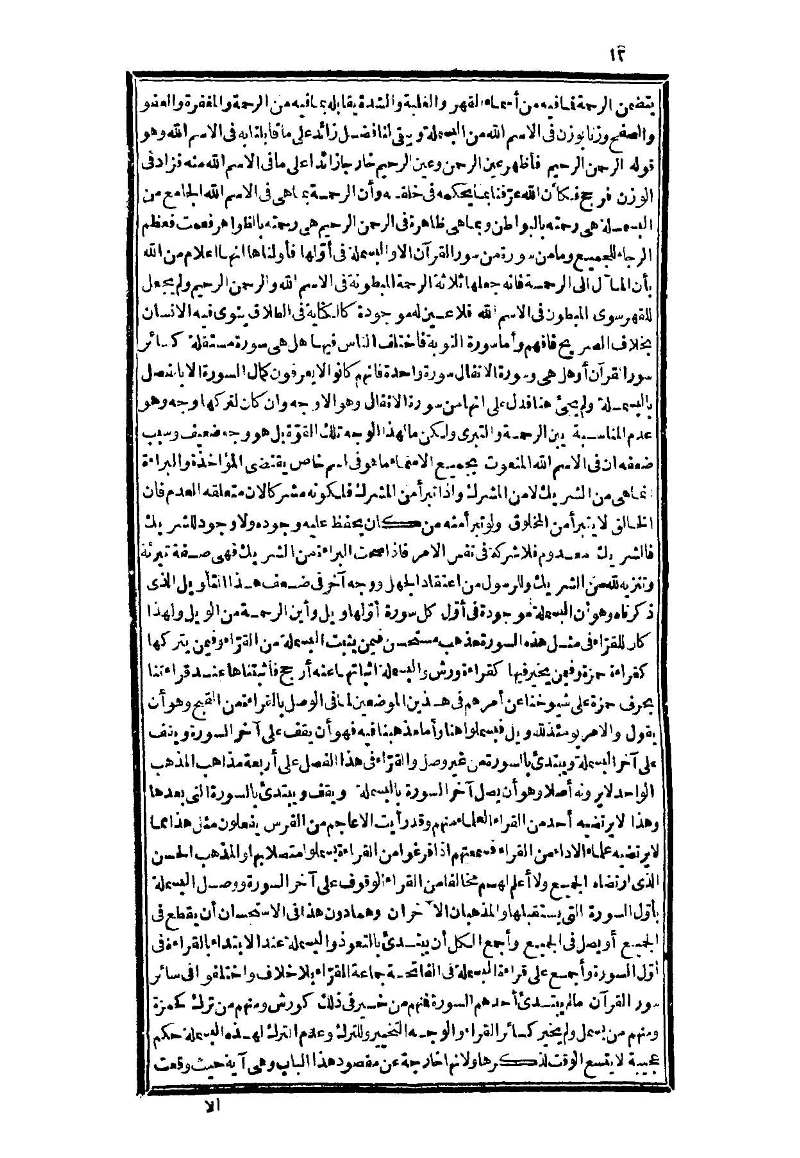 ١٢
يتضمن الرحمة فما فيه من أسماء القهر والغلبة والشدة يقابله بما فيه من الرحمة والمغفرة والعفو
والصفح وزنا بوزن فى الاسم الله من البسملة ويبقى لنا فضل زائد على ما قابلنا به فى الاسم الله وهو
قوله الرحمن الرحيم فأظهر عين الرحمن وعين الرحيم خارجا زائدا على ما فى الاسم الله منه فزاد فى
الوزن فرجح فكأن الله عرّفنا بما يحكمه فى خلقه وأن الرحمة بما هى فى الاسم الله الجامع من
البسملة هى رحمته بالبواطن وبما هى ظاهرة فى الرحمن الرحيم هى رحمته بالظواهر فعمت فعظم
الرجاء للجميع وما من سورة من سور القرآن الا والبسملة فى أوّلها فأولناها انها اعلام من الله
بأن المآل الى الرحمة فانه جعلها ثلاثة الرحمة المبطونة فى الاسم الله والرحمن الرحيم ولم يجعل
للقهر سوى المبطون فى الاسم الله فلا عين له موجودة كالكناية فى الطلاق ينوى فيه الانسان
بخلاف الصريح فافهم وأما سورة التوبة فاختلف الناس فيها هل هى سورة مستقلة كسائر
سور القرآن أو هل هى وسورة الانفال سورة واحدة فانهم كانوا لا يعرفون كمال السورة الا بالفصل
بالبسملة ولم يجئ هنا فدل على انها من سورة الانفال وهو الاوجه وان كان لتركها وجه وهو
عدم المناسبة بين الرحمة والتبرى ولكن ما لهذا الوجه تلك القوّة بل هو وجه ضعيف وسبب
ضعفه ان فى الاسم الله المنعوت بجميع الاسماء ما هو فى اسم خاص يقتضى المؤاخذة والبراءة
انما هى من الشريك لا من المشرك واذا تبرأ من المشرك فلكونه مشركا لان متعلقه العدم فان
الخالق لا يتبرأ من المخلوق ولو تبرأ منه من كان يحفظ عليه وجوده ولا وجود للشريك
فالشريك معدوم فلا شركة فى نفس الامر فاذا صحت البراءة من الشريك فهى صفة تبرئة
وتنزيه لله من الشريك وللرسول من اعتقاد الجهل ووجه آخر فى ضعف هذا التأويل الذى
ذكرناه وهو أن البسملة موجودة فى أوّل كل سورة أوّلها ويل وأين الرحمة من الويل ولهذا
كان للقرّاء فى مثل هذه السورة مذهب مستحسن فيمن يثبت البسملة من القرّاء وفيمن يتركها
كقراءة حمزة وفيمن يخير فيها كقراءة ورش والبسملة اثباتها عنه أرجح فأثبتناها عند قراءتنا
بحرف حمزة على شيوخنا عن أمرهم فى هذين الموضعين لما فى الوصل بالقراءة من القبح وهو أن
يقول والامر يومئذ لله ويل فبسملوا هنا وأما مذهبنا فيه فهو أن يقف على آخر السورة ويقف
على آخر البسملة ويبتدئ بالسورة من غير وصل والقرّاء فى هذا الفصل على أربعة مذاهب المذهب
الواحد لا يرونه أصلا وهو أن يصل آخر السورة بالبسملة ويقف ويبتدئ بالسورة التى بعدها
وهذا لا يرتضيه أحد من القراء العلماء منهم وقد رأيت الاعاجم من الفرس يفعلون مثل هذا مما
لا يرتضيه علماء الاداء من القراء فسمعتهم اذا فرغوا من القراءة بسملوا متصلا بها والمذهب الحسن
الذى ارتضاه الجميع ولا أعلم لهم مخالفا من القراء الوقوف على آخر السورة ووصل البسملة
بأوّل السورة التى يستقبلها والمذهبان الآخران وهما دون هذا فى الاستحسان أن يقطع فى
الجميع أو يصل فى الجميع وأجمع الكل أن يبتدئ بالتعوذ والبسملة عند الابتداء بالقراءة فى
أوّل السورة وأجمع على قراءة البسملة فى الفاتحة جماعة القرّاء بلا خلاف واختلفوا فى سائر
سور القرآن ما لم يبتدئ أحدهم السورة فمنهم من خير فى ذلك كورش ومنهم من ترك كحمزة
ومنهم من بسمل ولم يخير كسائر القراء والوجه التخيير وللترك وعدم الترك لهذه البسملة حكم
عجيبة لا يتسع الوقت لذكرها ولانها خارجة عن مقصود هذا الباب وهى آية حيث وقعت
الا